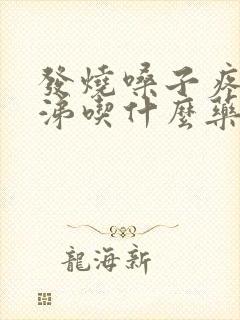 發燒嗓子疼
涕喫什麼藥
龍海新